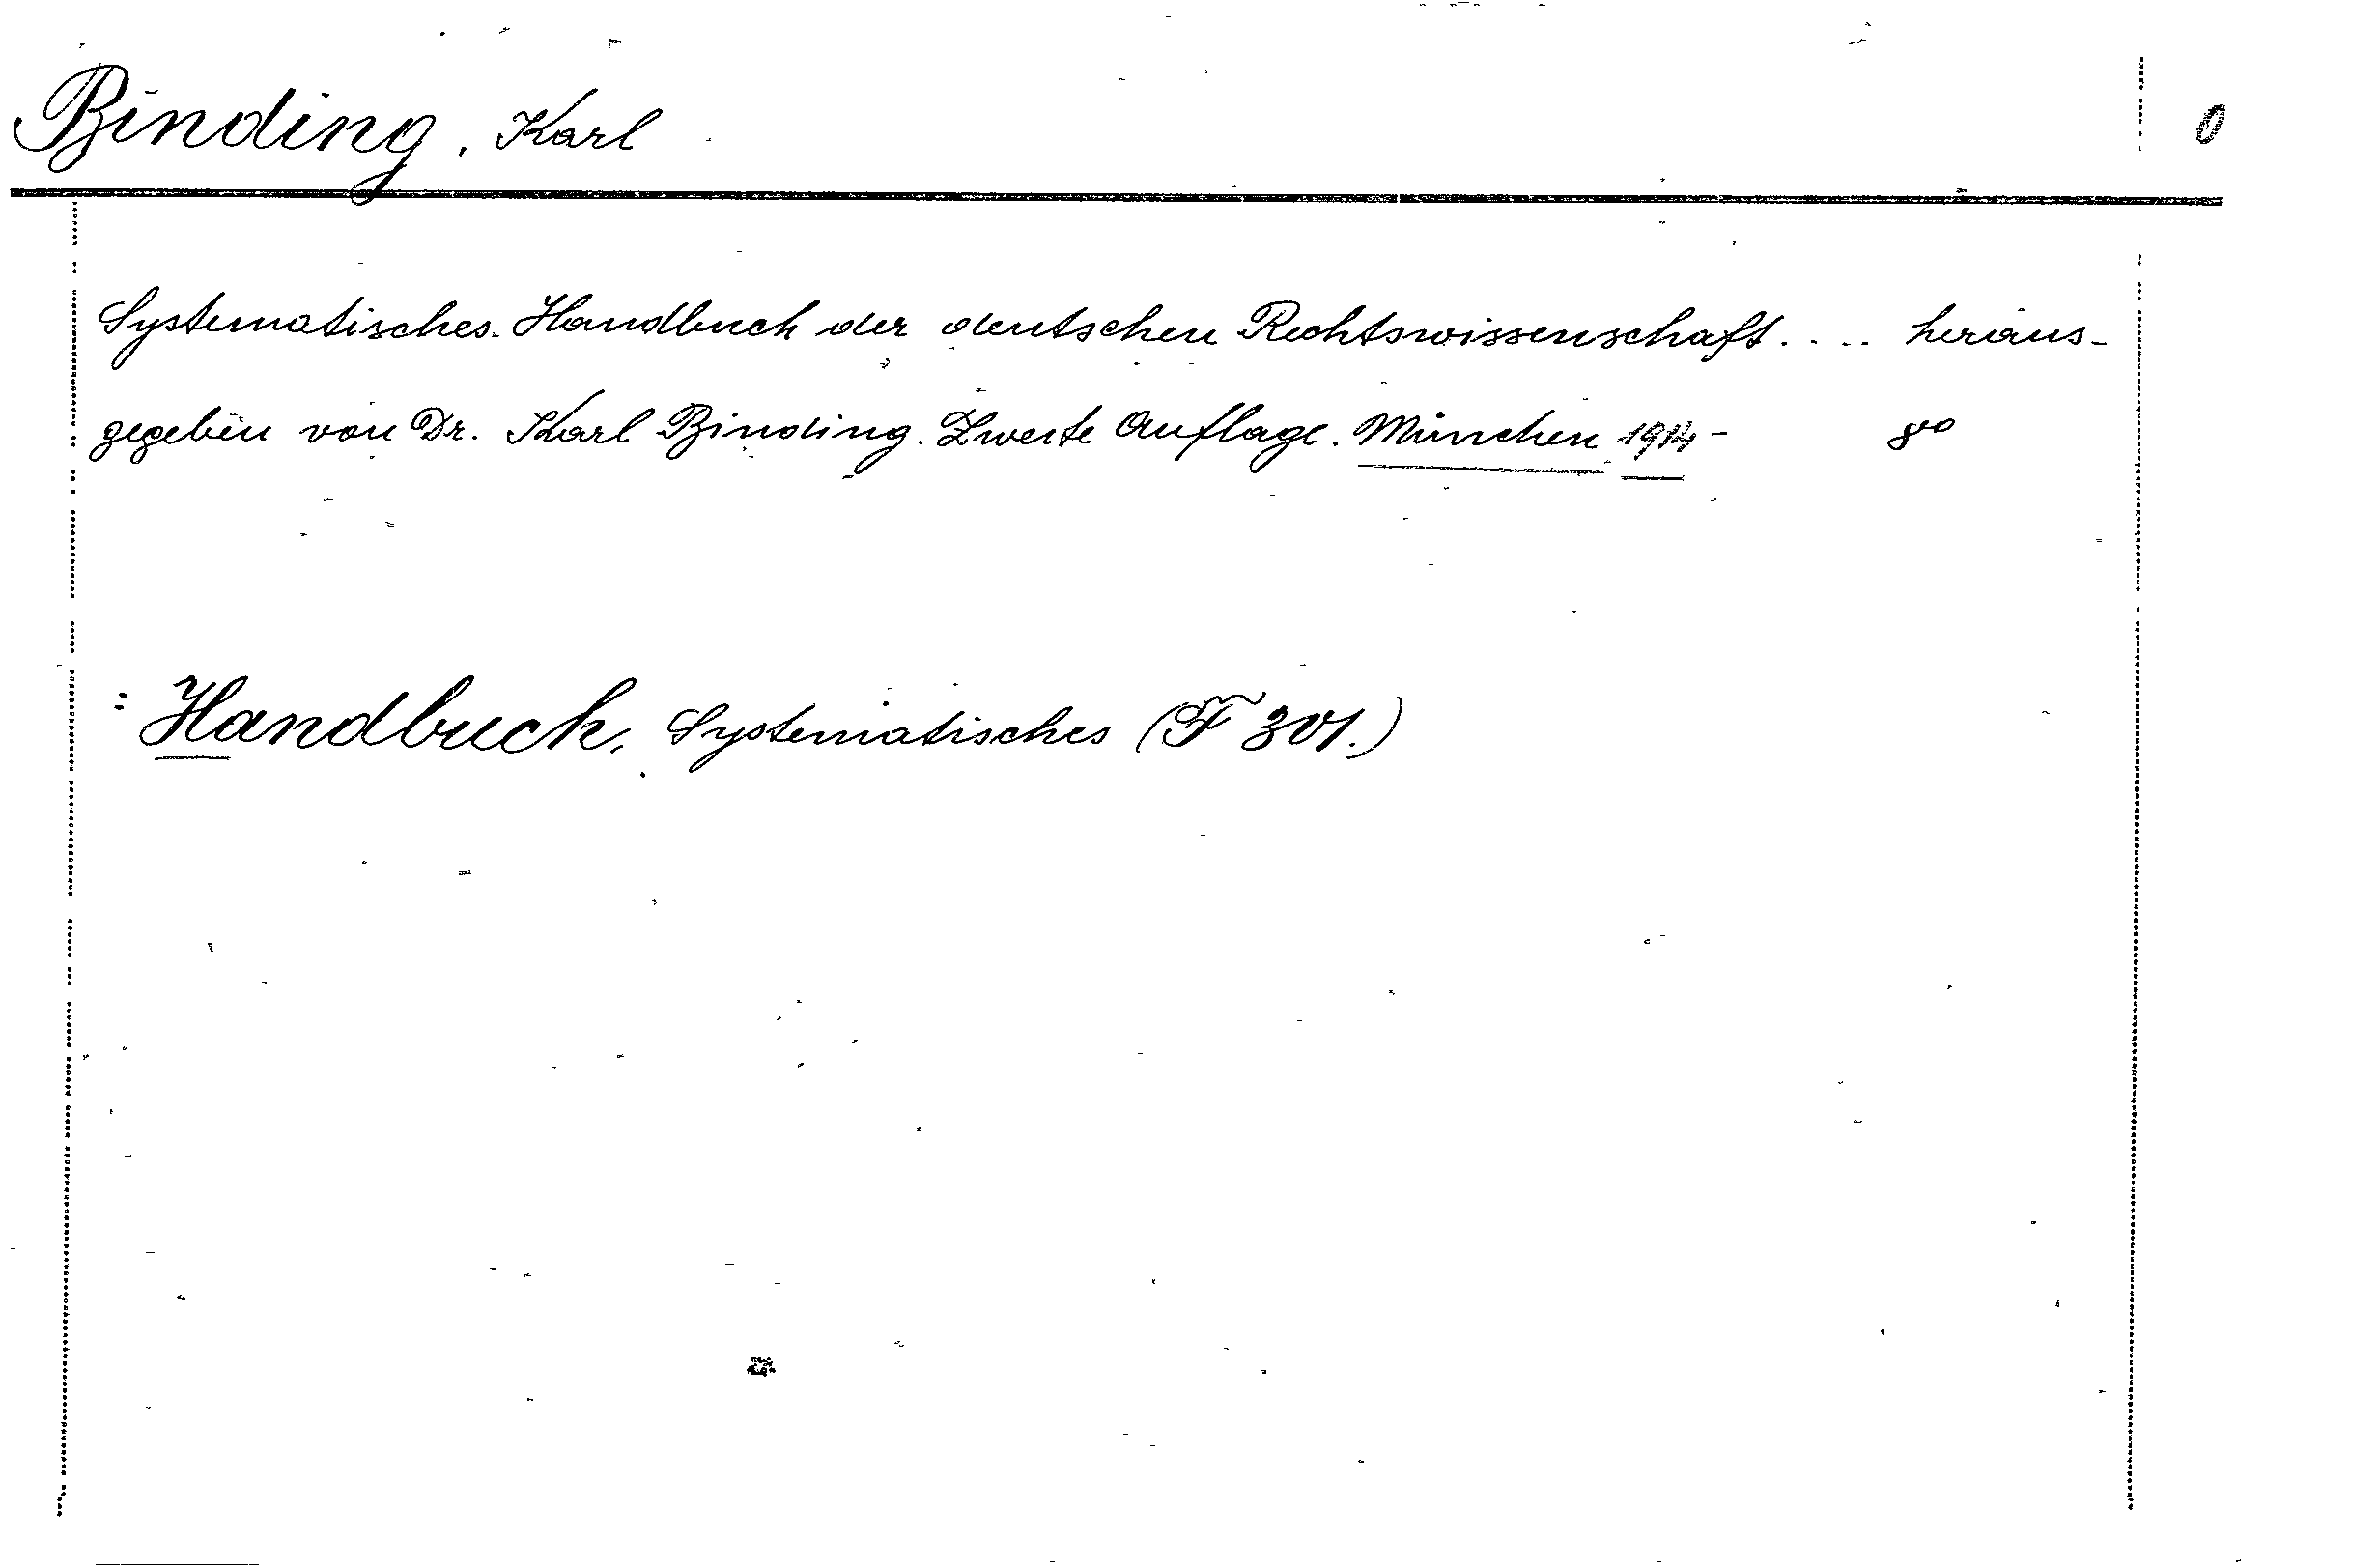 Binding, Karl 0
Systematisches Handbuch der deutschen Rechtswissenschaft.... heraus-
gegeben von Dr. Karl Binding. Zweite Auflage. München 1914- 8vo
: Handbuch, Systematisches (F 301.)